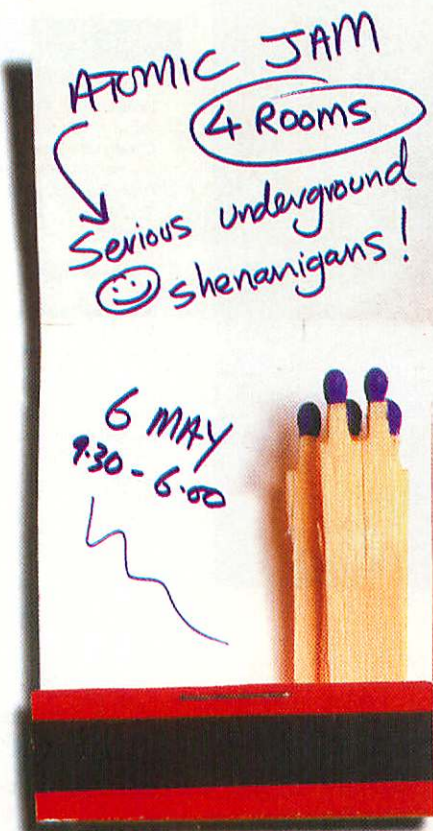 ATOMIC JAM
4 ROOMS
Serious underground
shenanigans!
6 MAY
9.30 - 6.00